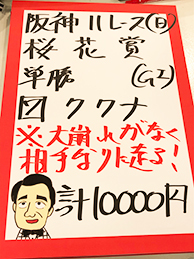 阪神11レース(日)
桜花賞
単勝 (GI)
図ククナ
※大崩れがなく
相手なりに走る!
計10000円